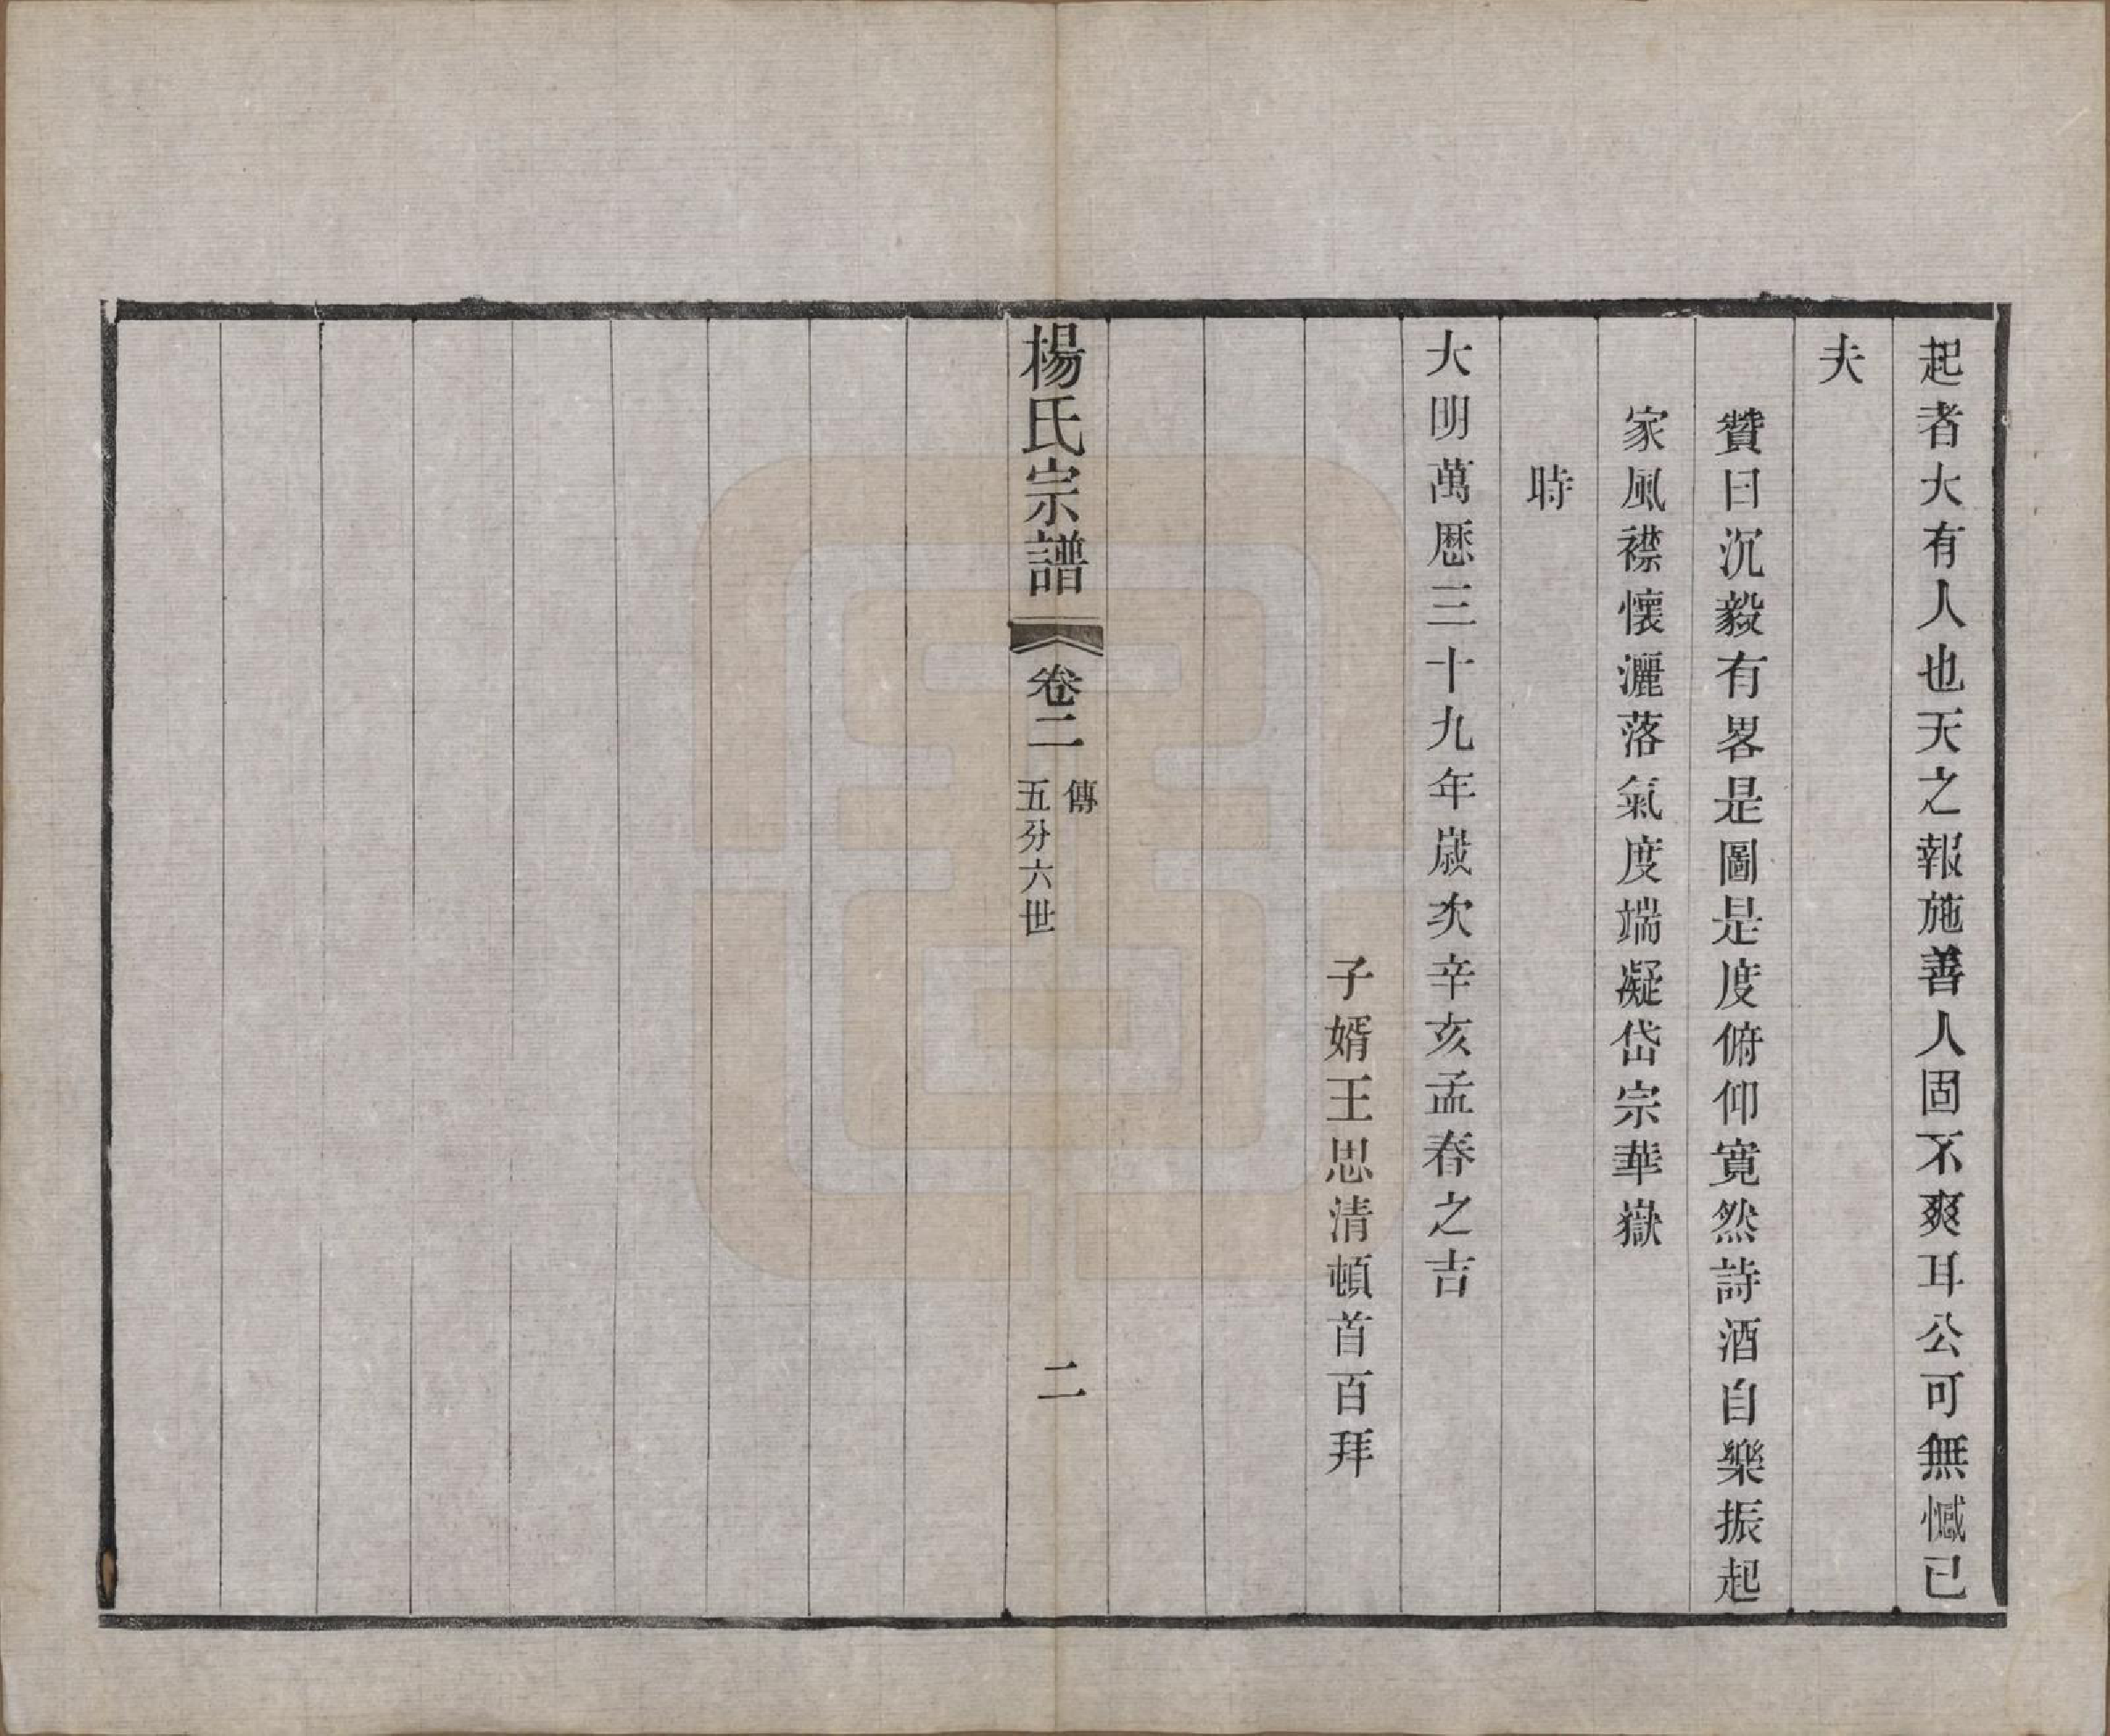 起者大有人也天之報施善人固不爽耳公可無憾已
夫
贊曰沉毅有畧是圖是度俯仰寬然詩酒自樂振起
家風襟懷灑落氣度端凝岱宗華嶽
時
大明萬厯三十九年歲次辛亥孟春之吉
子婿王思清頓首百拜
楊氏宗譜 卷二 傳 五分六世 二